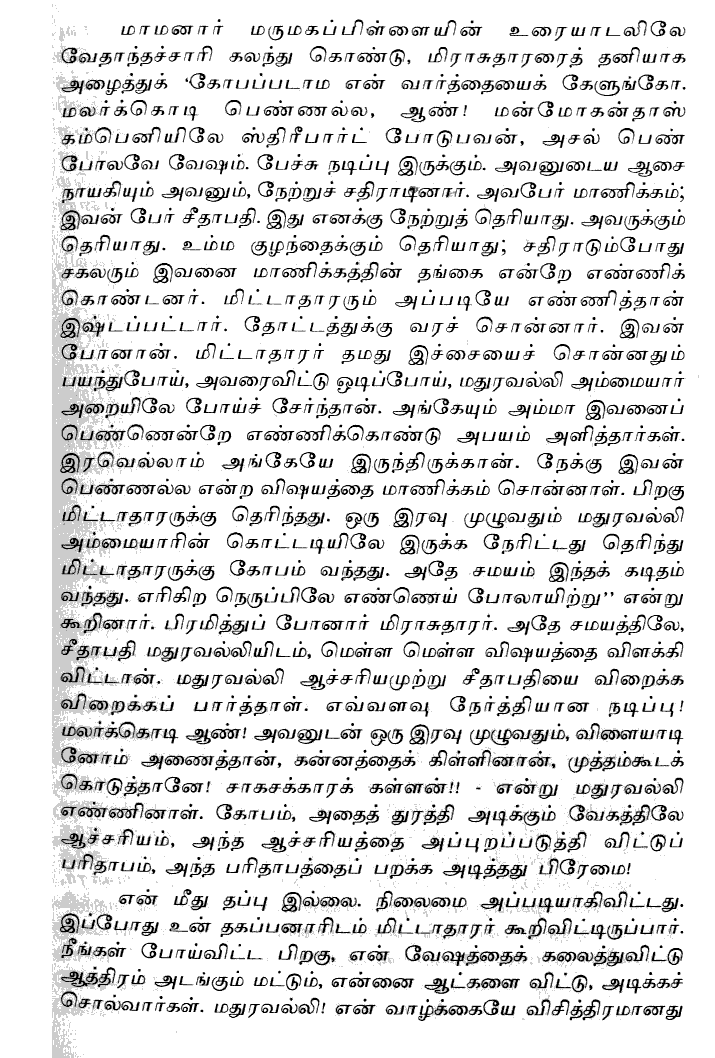 மாமனார் மருமகப்பிள்ளையின் உரையாடலிலே
வேதாந்தச்சாரி கலந்து கொண்டு, மிராசுதாரரைத் தனியாக
அழைத்துக் 'கோபப்படாம என் வார்த்தையைக் கேளுங்கோ.
மலர்க்கொடி பெண்ணல்ல, ஆண்! மன்மோகன்தாஸ்
கம்பெனியிலே ஸ்திரீபார்ட் போடுபவன், அசல் பெண்
போலவே வேஷம். பேச்சு நடிப்பு இருக்கும். அவனுடைய ஆசை
நாயகியும் அவனும், நேற்றுச் சதிராடினார். அவபேர் மாணிக்கம்;
இவன் பேர் சீதாபதி. இது எனக்கு நேற்றுத் தெரியாது. அவருக்கும்
தெரியாது. உம்ம குழந்தைக்கும் தெரியாது; சதிராடும்போது
சகலரும் இவனை மாணிக்கத்தின் தங்கை என்றே எண்ணிக்
கொண்டனர். மிட்டாதாரரும் அப்படியே எண்ணித்தான்
இஷ்டப்பட்டார். தோட்டத்துக்கு வரச் சொன்னார். இவன்
போனான். மிட்டாதாரர் தமது இச்சையைச் சொன்னதும்
பயந்துபோய், அவரைவிட்டு ஒடிப்போய், மதுரவல்லி அம்மையார்
அறையிலே போய்ச் சேர்ந்தான். அங்கேயும் அம்மா இவனைப்
பெண்ணென்றே எண்ணிக்கொண்டு அபயம் அளித்தார்கள்.
இரவெல்லாம் அங்கேயே இருந்திருக்கான். நேக்கு இவன்
பெண்ணல்ல என்ற விஷயத்தை மாணிக்கம் சொன்னாள். பிறகு
மிட்டாதாரருக்கு தெரிந்தது. ஒரு இரவு முழுவதும் மதுரவல்லி
அம்மையாரின் கொட்டடியிலே இருக்க நேரிட்டது தெரிந்து
மிட்டாதாரருக்கு கோபம் வந்தது. அதே சமயம் இந்தக் கடிதம்
வந்தது. எரிகிற நெருப்பிலே எண்ணெய் போலாயிற்று'' என்று
கூறினார். பிரமித்துப் போனார் மிராசுதாரர். அதே சமயத்திலே,
சீதாபதி மதுரவல்லியிடம், மெள்ள மெள்ள விஷயத்தை விளக்கி
விட்டான். மதுரவல்லி ஆச்சரியமுற்று சீதாபதியை விறைக்க
விறைக்கப் பார்த்தாள். எவ்வளவு நேர்த்தியான நடிப்பு!
மலர்க்கொடி ஆண்! அவனுடன் ஒரு இரவு முழுவதும், விளையாடி
னோம் அணைத்தான், கன்னத்தைக் கிள்ளினான், முத்தம்கூடக்
கொடுத்தானே! சாகசக்காரக் கள்ளன்!! - என்று மதுரவல்லி
எண்ணினாள். கோபம், அதைத் துரத்தி அடிக்கும் வேகத்திலே
ஆச்சரியம், அந்த ஆச்சரியத்தை அப்புறப்படுத்தி விட்டுப்
பரிதாபம், அந்த பரிதாபத்தைப் பறக்க அடித்தது பிரேமை!
என் மீது தப்பு இல்லை. நிலைமை அப்படியாகிவிட்டது.
இப்போது உன் தகப்பனாரிடம் மிட்டாதாரர் கூறிவிட்டிருப்பார்.
நீங்கள் போய்விட்ட பிறகு, என் வேஷத்தைக் கலைத்துவிட்டு
ஆத்திரம் அடங்கும் மட்டும், என்னை ஆட்களை விட்டு, அடிக்கச்
சொல்வார்கள். மதுரவல்லி! என் வாழ்க்கையே விசித்திரமானது